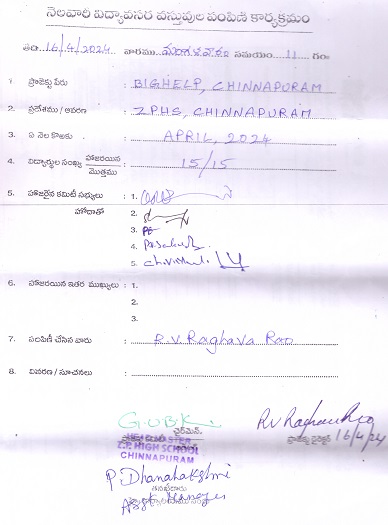 నెలవారీ విద్యావసర వస్తువుల పంపిణీ కార్యక్రమం
తేది. 16/4/2024 వారము మంగళవారం సమయం 11 గం
1 ప్రాజెక్టు పేరు : BIGHELP, CHINNAPURAM
2. ప్రదేశము / ఆవరణ : ZPHS, CHINNAPURAM
3. ఏ నెల కొఱకు : APRIL, 2024
4. విద్యార్థుల సంఖ్య హాజరయిన / మొత్తము : 15/15
5. హాజరైన కమిటీ సభ్యులు : 1.
హోదాతో 2.
3.
4.
5.
6. హాజరయిన ఇతర ముఖ్యులు : 1.
2.
3.
7. పంపిణీ చేసిన వారు : R.V. Raghava Rao
8. వివరణ / సూచనలు :
G.U.B.K. RV Raghava Rao
చైర్మెన్. ప్రాజెక్టు డైరెక్టర్ 16/4/24
Z.P. HIGH SCHOOL
CHINNAPURAM
P. Dhanalakshmi